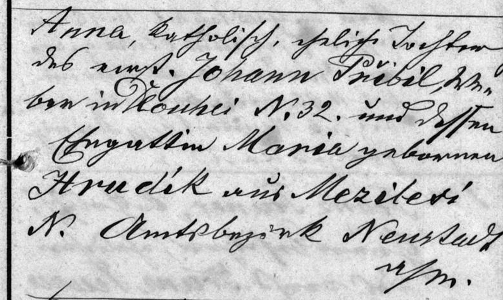 Anna, katholisch, eheliche Tochter
des verst. Johann Přibil, We-
ber in Slouhei N. 32. und dessen
Ehgattin Maria gebornen
Hrudik aus Mezilesi
N. Amtsbezirk Neustadt
a/m.